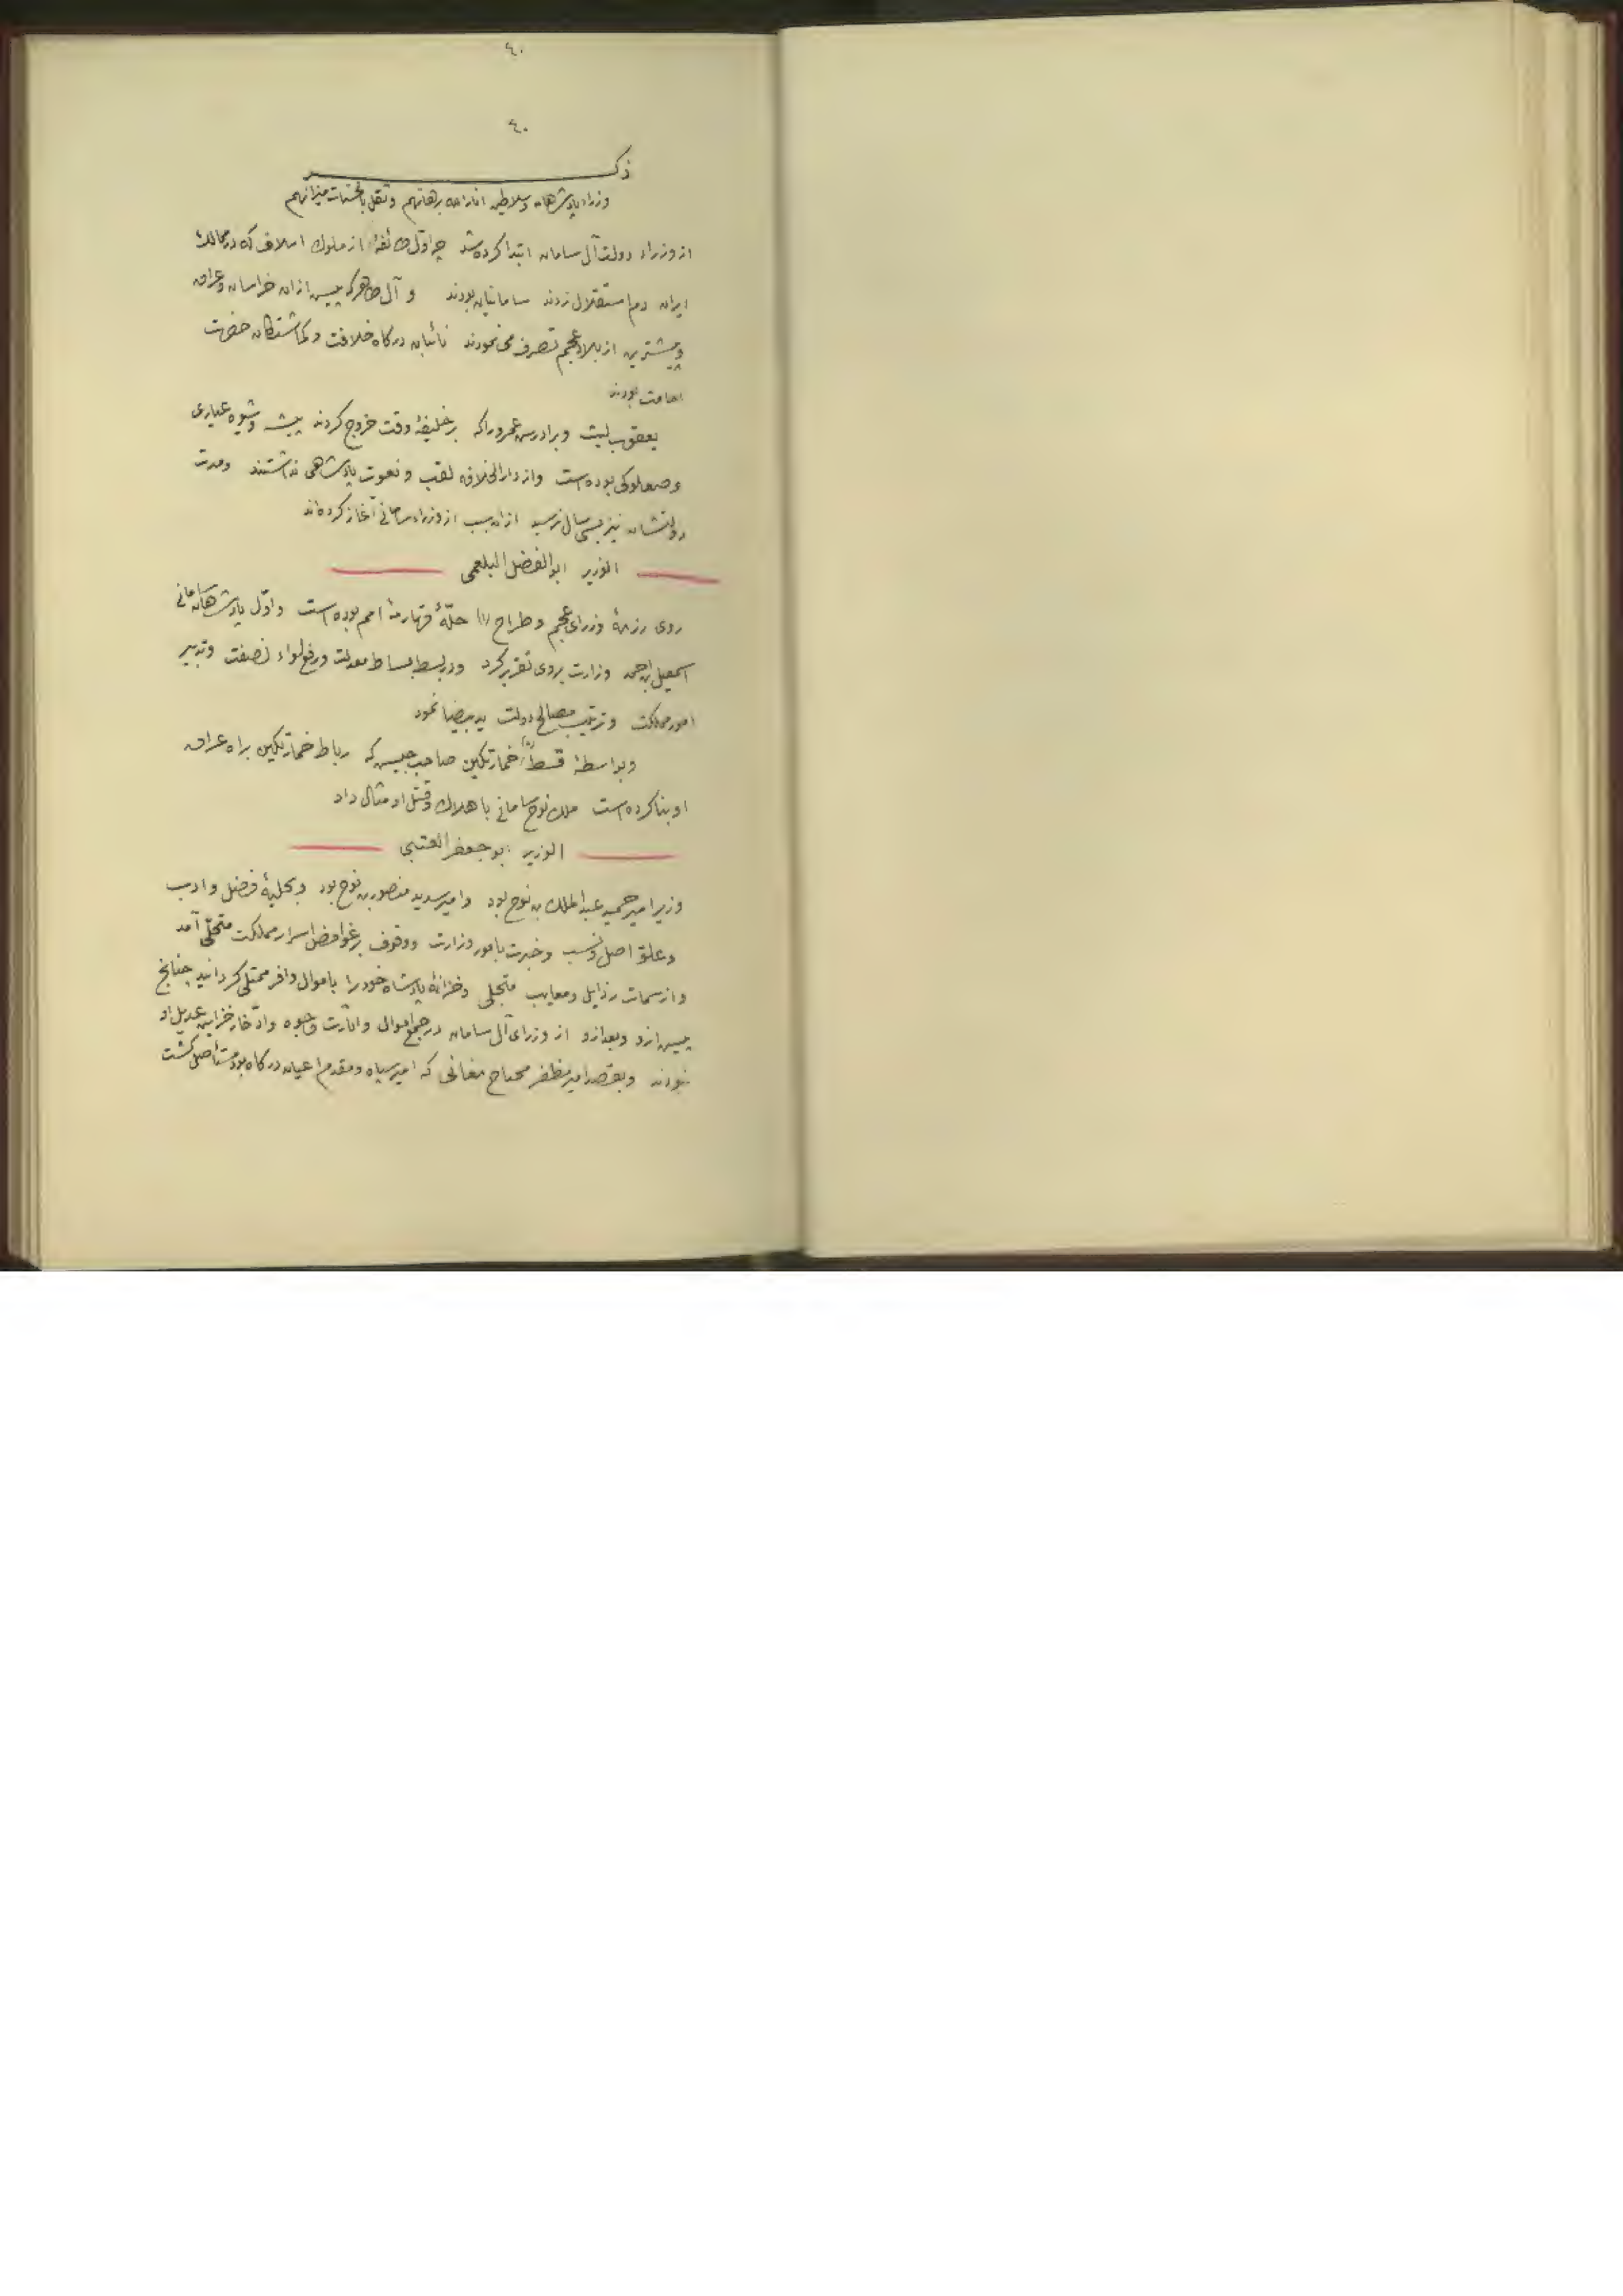 ٤٠
٤٠
ذکر
وزراء پادشاهان و سلاطین انار الله برهانهم و ثقل بالحسنات میزانهم
از وزراء دولت آل سامان ابتدا کرده شد چه اوّل طائفهٔ از ملوك اسلاف که در ممالك
ایران دم استقلال زدند سامانیان بودند و آل طاهر که پیش ازان خراسان و عراق
و بیشترین از بلاد عجم تصرف می نمودند نائبان درکاه خلافت و کماشتکان حضرت
امامت بودند
یعقوب لیث و برادرس عمرو را که بر خلیفهٔ وقت خروج کردند پیشه و شیوه عیاری
و صعلوکی بوده است و از دار الخلافه لقب و نعوت پادشاهی نداشتند و مدت
دولتشان نیز بسی سال نرسید ازان سبب از وزراء سامانی آغاز کرده‌اند
الوزیر ابو الفضل البلعمی
روی رزمهٔ وزرای عجم و طراح (١) حلّهٔ قهارمهٔ امم بوده است و اوّل پادشاهان سامانی
اسمعیل بن احمد وزارت بروی تقریر کرد و در بسط بساط معدلت و رفع لواء نصفت و تدبیر
امور مملکت و ترتیب مصالح دولت ید بیضا نمود
و بواسطهٔ قسط (٢) خمارتکین صاحب جیس که رباط خمارتکین براه عراق
او بنا کرده است ملك نوح سامانی با هلاك و قتل او مثال داد
الوزیر ابو جعفر العتبی
وزیر امیر حمید عبد الملك بن نوح بود و امیر سدید منصور بن نوح بود و بحلیهٔ فضل و ادب
و علوّ اصل و نسب و خبرت بامور وزارت و وقوف بر غوامض اسرار مملکت متحلّی آمد
و از سمات رذایل و معایب متجلی و خزانهٔ پادشاه خود را باموال وافر ممتلی کردانید چنانچ
پیس ازو و بعد ازو از وزرای آل سامان در جمع اموال و اثارت وجوه و ادّخار خزاین عدیل او
نبودند و بقصد امیر مظفر محتاج مغانی که امیر سپاه و مقدم اعیان درکاه بود مستأصل کشت